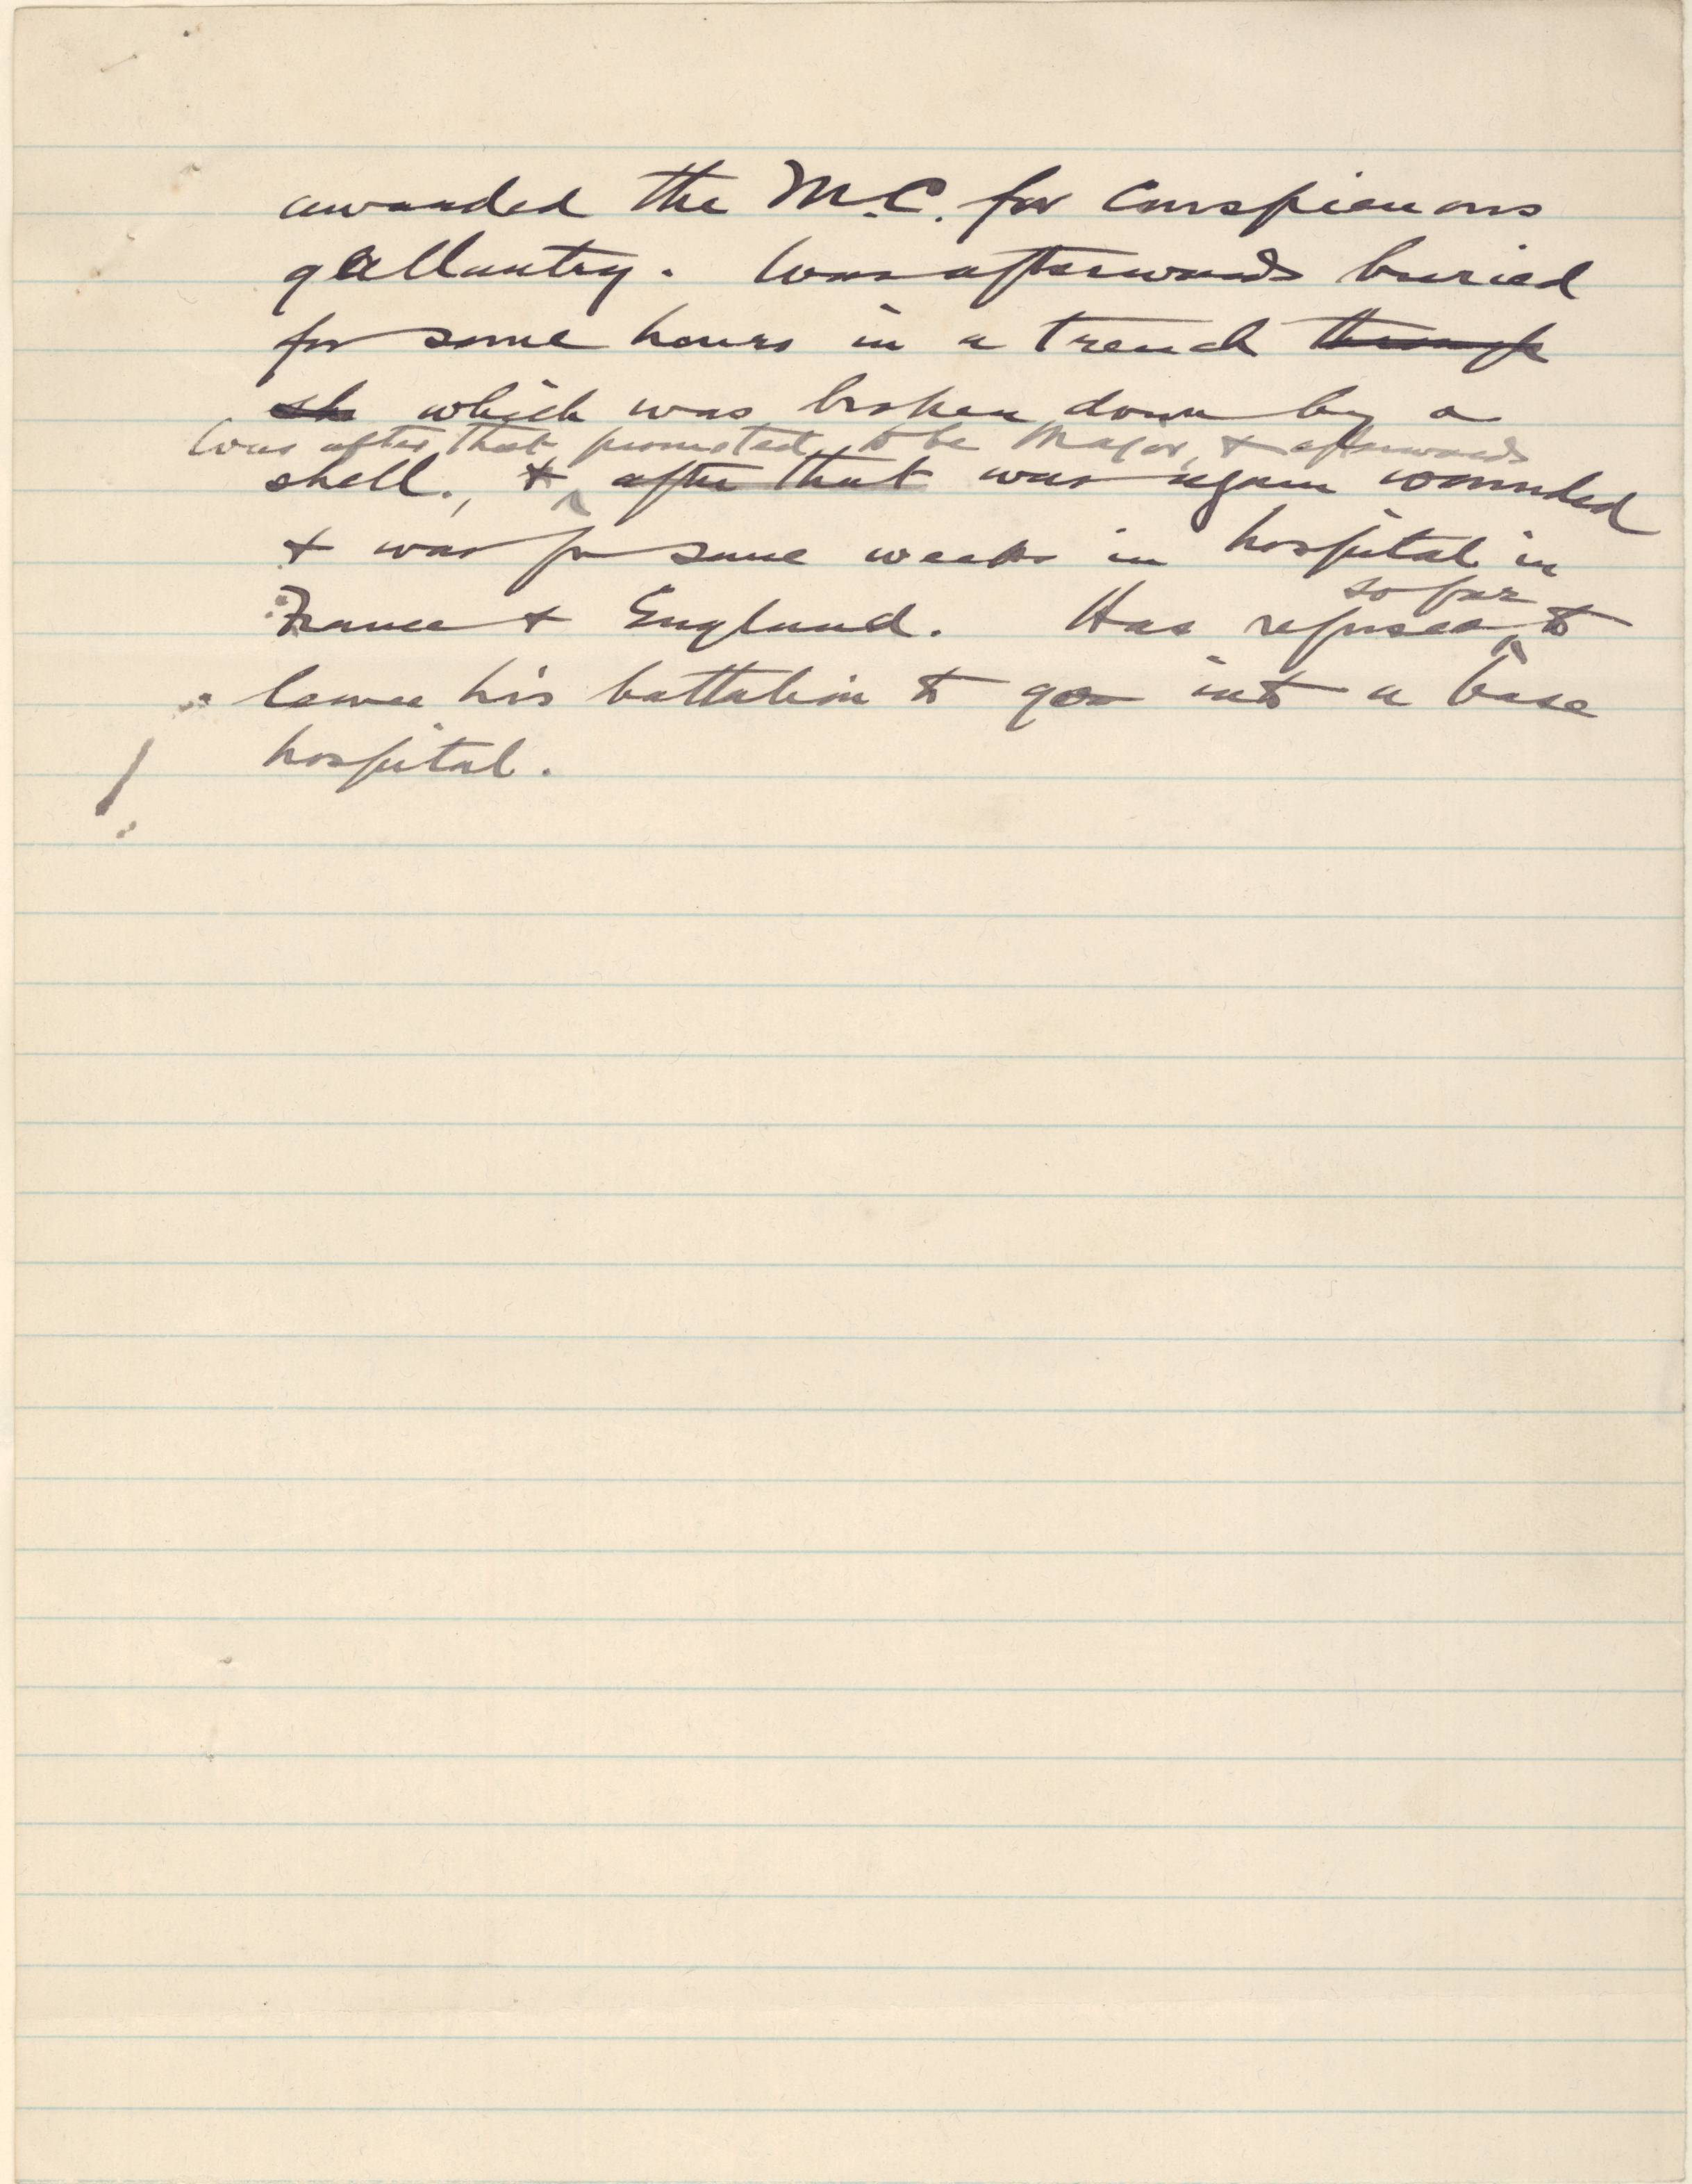 awarded the M.C. for conspicuous
gallantry. Was afterwards buried
for some hours in a trench through
sh which was broken down by a
Was after that promoted to be Major, & afterwards
shell., & after that was again wounded
& was for some weeks in hospital in
so far
France & England. Has refused to
leave his battalion to go into a base
hospital.